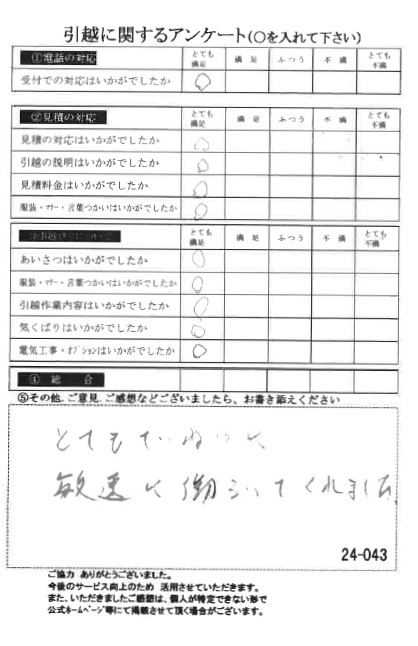 引越に関するアンケート(○を入れて下さい)
①電話の対応 とても満足 満足 ふつう 不満 とても不満
受付での対応はいかがでしたか ○
②見積の対応 とても満足 満足 ふつう 不満 とても不満
見積の対応はいかがでしたか ○
引越の説明はいかがでしたか ○
見積料金はいかがでしたか ○
服装・マナー・言葉つかいはいかがでしたか ○
とても満足 満足 ふつう 不満 とても不満
あいさつはいかがでしたか ○
服装・マナー・言葉つかいはいかがでしたか ○
引越作業内容はいかがでしたか ○
気くばりはいかがでしたか ○
電気工事・オプションはいかがでしたか ○
④総合
⑤その他、ご意見、ご感想などございましたら、お書き添えください
とてもていねいに
敏速に働いてくれました
24-043
ご協力 ありがとうございました。
今後のサービス向上のため 活用させていただきます。
また、いただきましたご感想は、個人が特定できない形で
公式ホームページ等にて掲載させて頂く場合がございます。